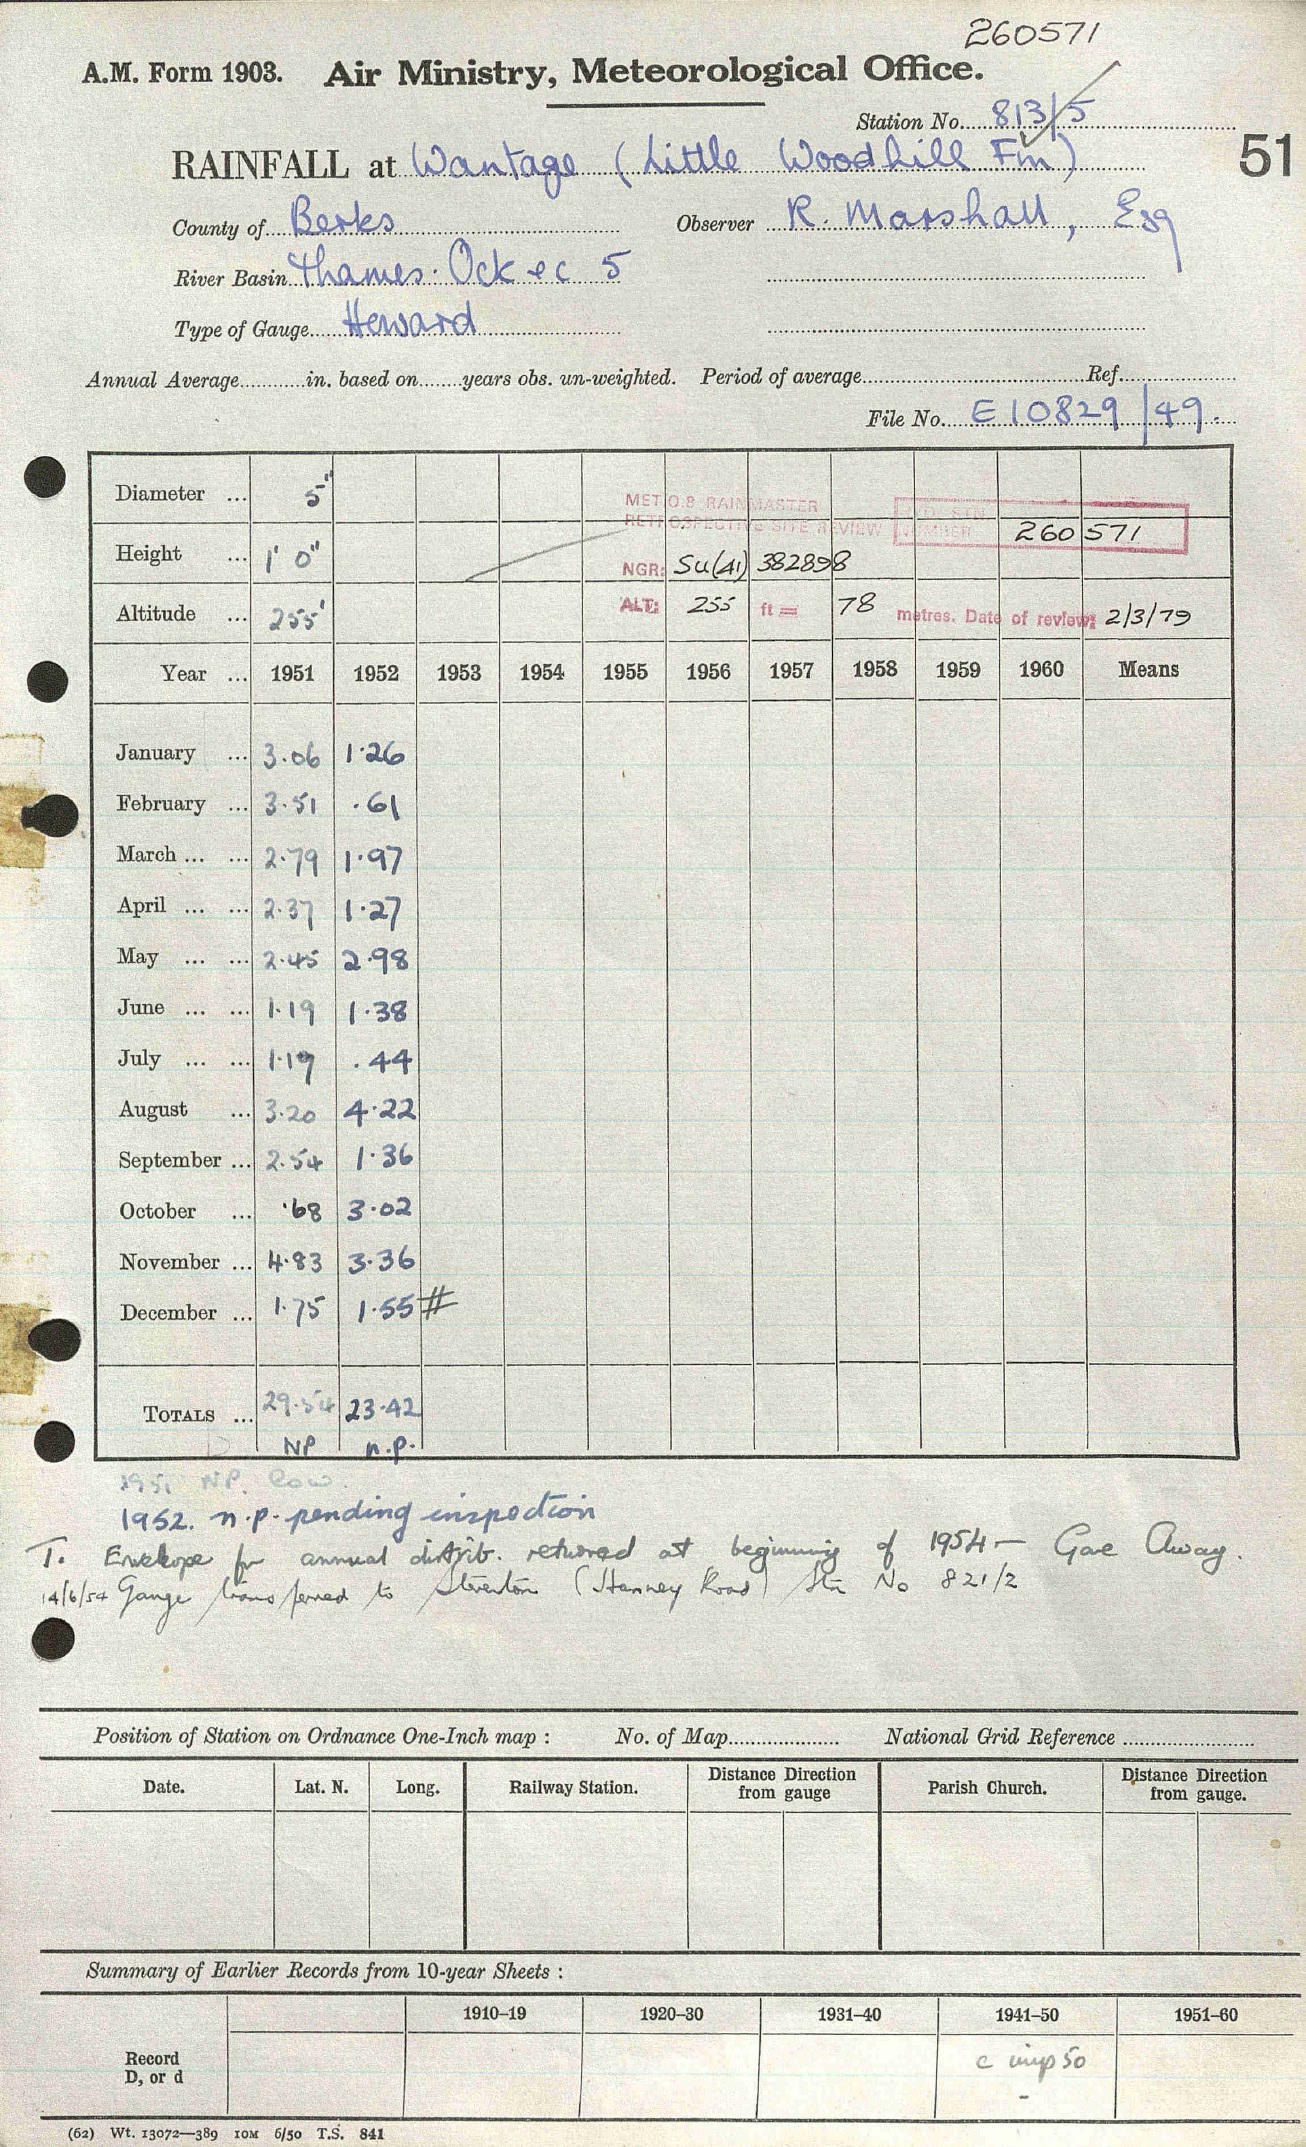 260571
A.M. Form 1903. Air Ministry, Meteorological Office.
Station No. 813/5
51
RAINFALL at Wantage (Little Woodhill Fm)
County of Berks Observer R. Marshall, Esq
River Basin Thames: Ock &c 5
Type of Gauge Howard
Annual Average in. based on years obs. un-weighted. Period of average Ref.
File No. E10829/49.
Diameter ... 5"
MET O.8 RAINMASTER
RETROSPECTIVE SITE REVIEW
STN NUMBER 260571
Height ... 1' 0"
NGR: SU(41) 382898
Altitude ... 255'
ALT: 255 ft = 78 metres. Date of review: 2/3/79
Year ... 1951 1952 1953 1954 1955 1956 1957 1958 1959 1960 Means
January ... 3.06 1.26
February ... 3.51 .61
March ... ... 2.79 1.97
April ... ... 2.37 1.27
May ... ... 2.45 2.98
June ... ... 1.19 1.38
July ... ... 1.17 .44
August ... 3.20 4.22
September ... 2.54 1.36
October ... .68 3.02
November ... 4.83 3.36
December ... 1.75 1.55 #
TOTALS ... 29.54 23.42
NP n.p.
1951 NP. low.
1952. n.p. pending inspection
T. Envelope for annual distrib. returned at beginning of 1954 — Gone Away.
14/6/54 Gauge transferred to Steventon (Hanney Road) Stn No 821/2
Position of Station on Ordnance One-Inch map : No. of Map National Grid Reference
Date. Lat. N. Long. Railway Station. Distance Direction from gauge Parish Church. Distance Direction from gauge.
Summary of Earlier Records from 10-year Sheets :
1910–19 1920–30 1931–40 1941–50 1951–60
Record D, or d c imp 50
-
(62) Wt. 13072—389 10M 6/50 T.S. 841